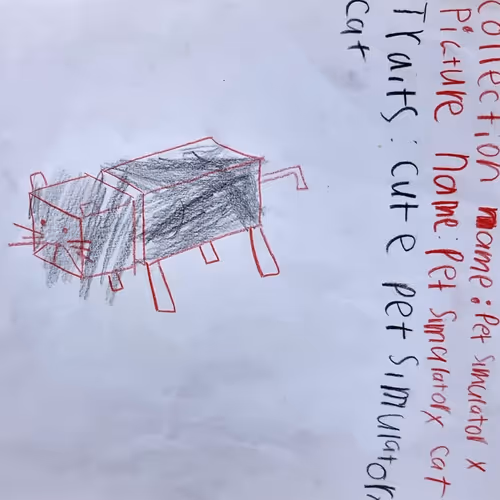 Collection name: Pet simulator x
Picture name: Pet simulatorx cat
Traits: cute pet simulator
cat